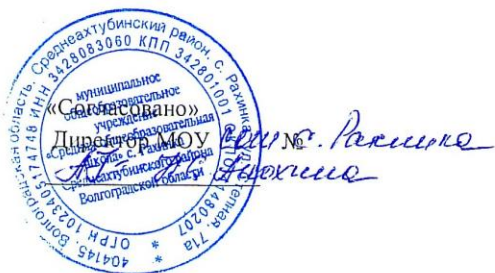 404145, Волгоградская область, Среднеахтубинский район, с. Рахинка, ул. Степная, 71а
ОГРН 1023405174748 ИНН 3428083060 КПП 342801001
муниципальное
общеобразовательное
учреждение
«Средняя общеобразовательная
школа» с. Рахинка
Среднеахтубинского района
Волгоградской области
«Согласовано»
Директор МОУ СШ № с. Рахинка